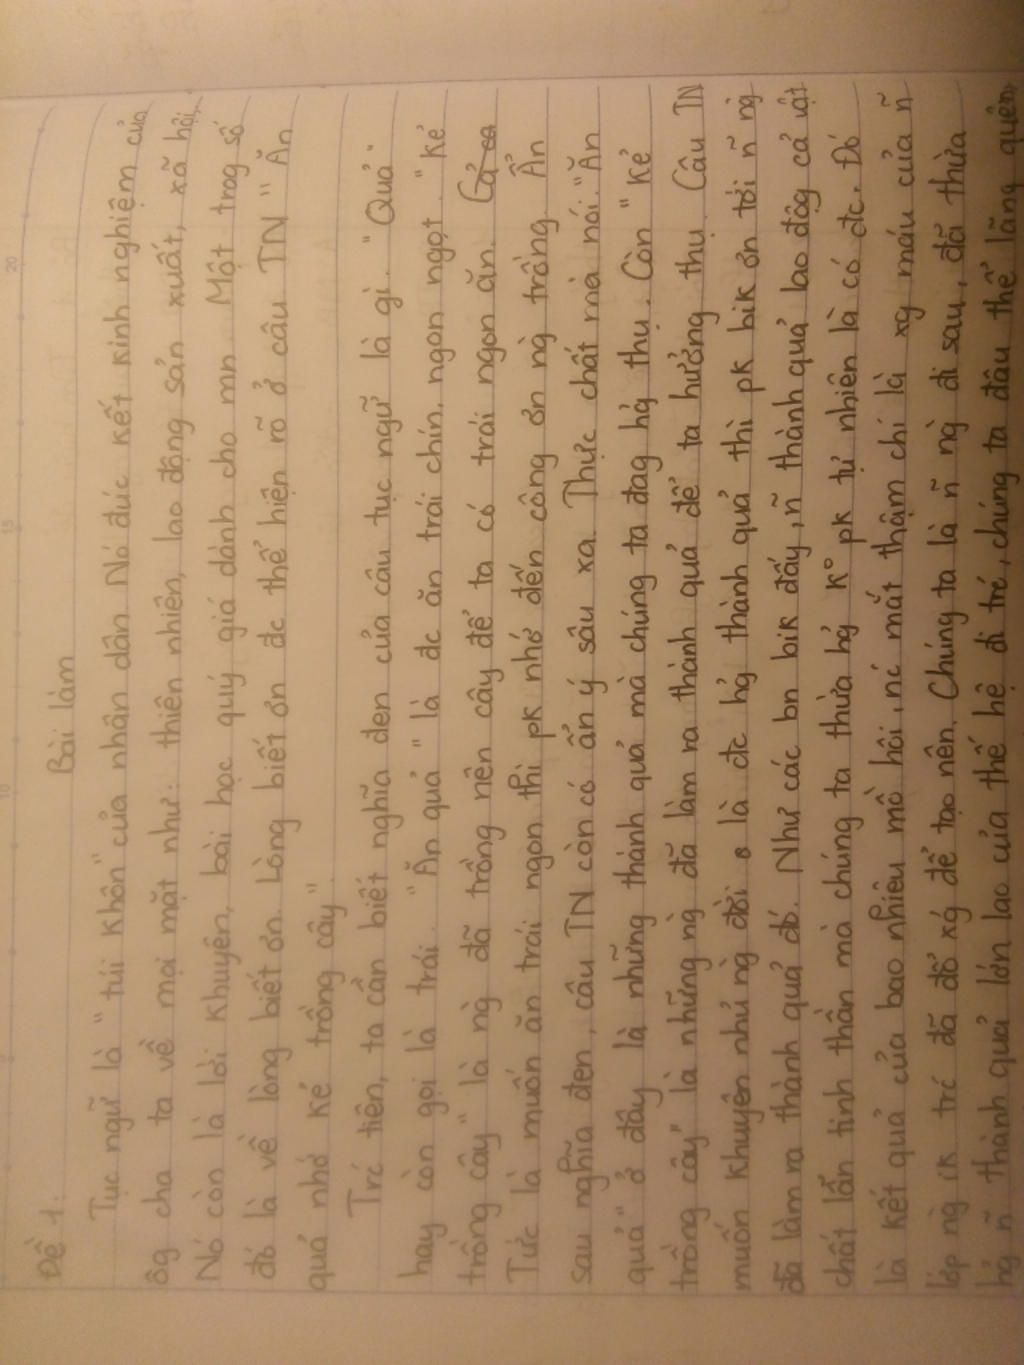 Đề 1:
Bài làm
Tục ngữ là "túi khôn" của nhân dân Nó đúc kết kinh nghiệm của
ôg cha ta về mọi mặt như: thiên nhiên, lao động sản xuất, xã hội,
Nó còn là lời khuyên, bài học quý giá dành cho mn. Một trog số
đó là về lòng biết ơn. Lòng biết ơn đc thể hiện rõ ở câu TN "Ăn
quả nhớ kẻ trồng cây".
Trc tiên, ta cần biết nghĩa đen của câu tục ngữ là gì. "Quả"
hay còn gọi là trái. "Ăn quả" là đc ăn trái chín, ngon ngọt. "Kẻ
trồng cây" là ng` đã trồng nên cây để ta có trái ngon ăn.
Tức là muốn ăn trái ngon thì pk nhớ đến công ơn ng` trồng. Ẩn
sau nghĩa đen, câu TN còn có ẩn ý sâu xa. Thực chất mà nói, "Ăn
quả" ở đây là những thành quả mà chúng ta đag hg̉ thụ. Còn "kẻ
trồng cây" là những ng` đã làm ra thành quả để ta hưởng thụ. Câu TN
muốn khuyên nhủ ng` đời là đc hg̉ thành quả thì pk bik ơn tới ñ ng`
đã làm ra thành quả đó. Như các bn bik đấy, ñ thành quả lao độg cả vật
chất lẫn tinh thần mà chúng ta thừa hg̉ k° pk tự nhiên là có đc. Đó
là kết quả của bao nhiêu mồ hôi, nc mắt thậm chí là xg máu của ñ
lớp ng` ik trc đã đổ xg để tạo nên. Chúng ta là ñ ng` đi sau, đã thừa
hg̉ ñ thành quả lớn lao của thế hệ đi trc, chúng ta đâu thể lãng quên